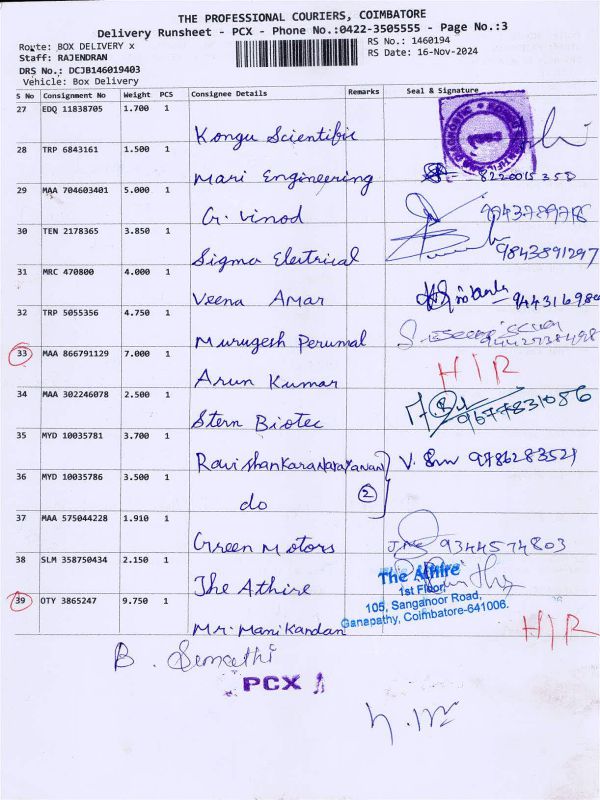 THE PROFESSIONAL COURIERS, COIMBATORE
Delivery Runsheet - PCX - Phone No.:0422-3505555 - Page No.:3
Route: BOX DELIVERY x
RS No.: 1460194
Staff: RAJENDRAN
RS Date: 16-Nov-2024
DRS No.: DCJB146019403
Vehicle: Box Delivery
S No Consignment No Weight PCS Consignee Details Remarks Seal & Signature
27 EDQ 11838705 1.700 1
Kongu Scientific
28 TRP 6843161 1.500 1
Mari Engineering 8220015350
29 MAA 704603401 5.000 1
G. Vinod 9943789786
30 TEN 2178365 3.850 1
Sigma Electrical 9843891297
31 MRC 470800 4.000 1
Veena Amar
32 TRP 5055356 4.750 1
Murugesh Perumal
33 MAA 866791129 7.000 1
Arun Kumar HIR
34 MAA 302246078 2.500 1
Stern Biotec 9677831086
35 MYD 10035781 3.700 1
Ravishankaranarayanan V. 9786283521
36 MYD 10035786 3.500 1
do 2
37 MAA 575044228 1.910 1
Green Motors 9344574803
38 SLM 358750434 2.150 1
The Athire
The Athire
1st Floor,
105, Sanganoor Road,
Ganapathy, Coimbatore-641006.
39 OTY 3865247 9.750 1
Mr. Manikandan HIR
B.
PCX